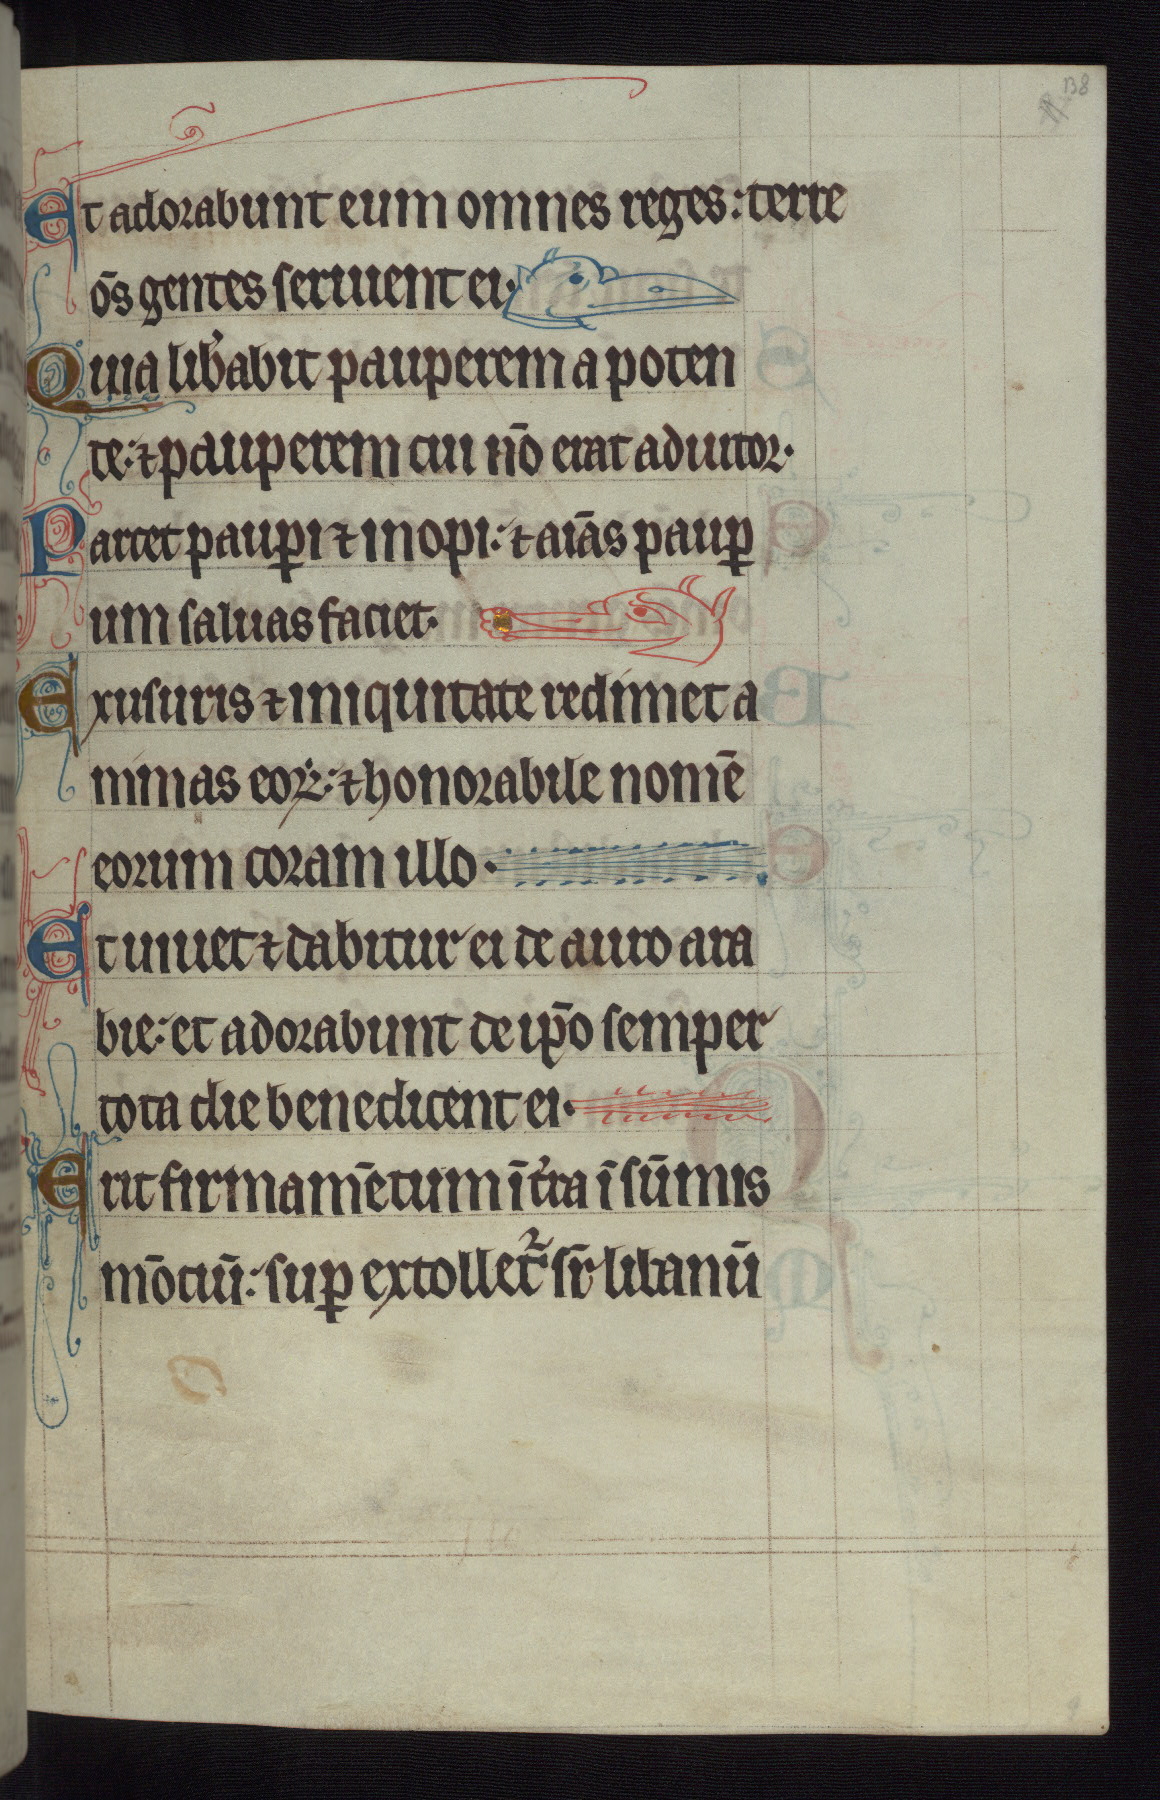 138
Et adorabunt eum omnes reges: terre
om̄s gentes seruient ei.
Quia lib̕abit pauperem a poten
te: ⁊ pauperem cui nō erat adiutor.
Parcet paup̲i ⁊ inopi: ⁊ aīas paup̲
um saluas faciet.
Ex usuris ⁊ iniquitate redimet a
nimas eoꝝ: ⁊ honorabile nomē
eorum coram illo.
Et uiuet ⁊ dabitur ei de auro ara
bie: et adorabunt de ip̄o semper
tota die benedicent ei.
Erit firmamētum ī t̕ra ī sūmis
mōtiū: sup̲ extollet᷑ sr̄ libanū